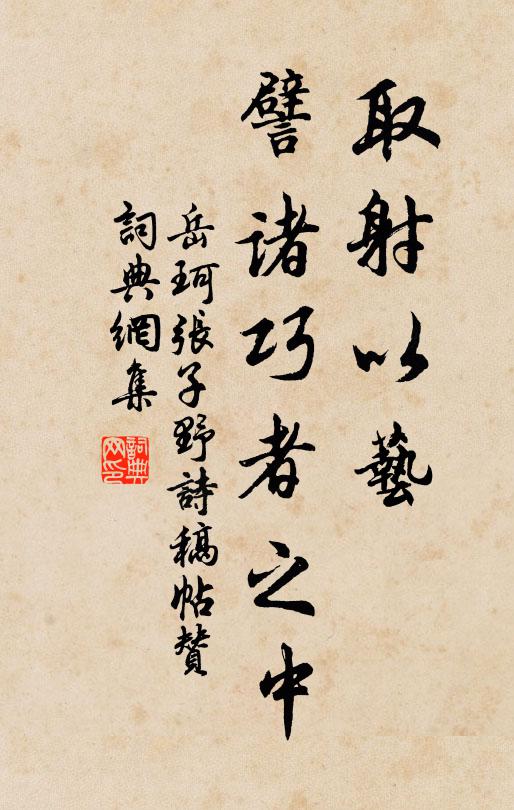 取射以藝
譬诸巧者之中
岳珂張子野詩稿帖贊
詞典網集
詞典
网印